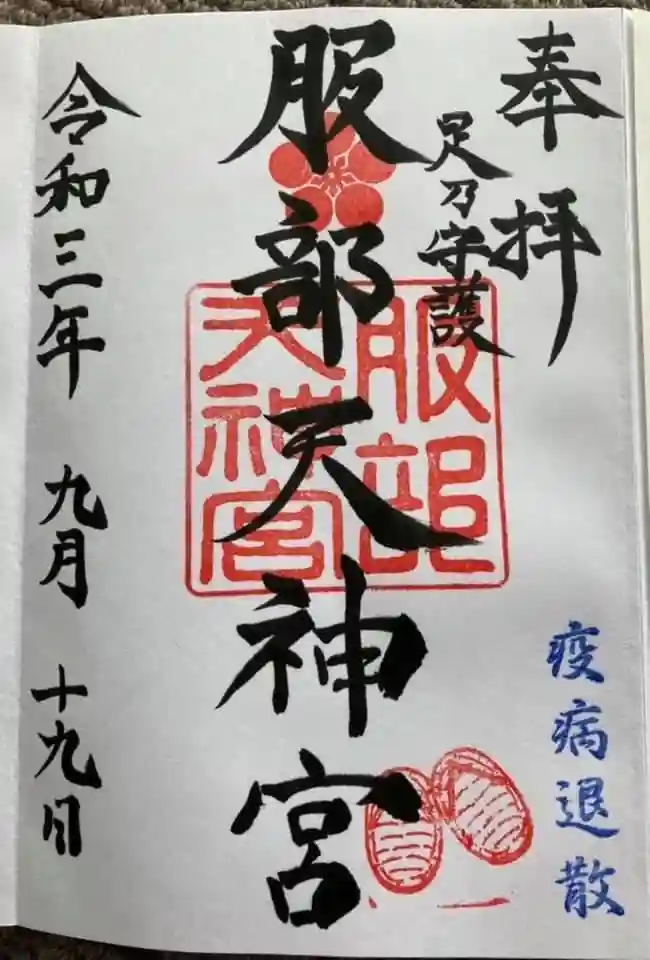 奉拝
足乃守護
服部天神宮
服部
天神宮
令和三年 九月 十九日
疫病退散